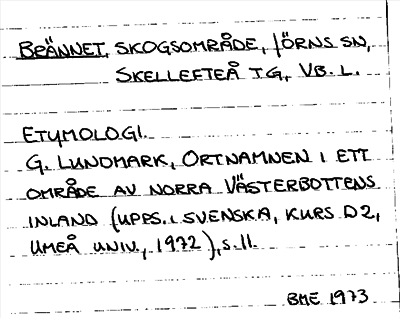 BRÄNNET, SKOGSOMRÅDE, JÖRNS SN,
SKELLEFTEÅ TG, VB. L.
ETYMOLOGI.
G. LUNDMARK, ORTNAMNEN I ETT
OMRÅDE AV NORRA VÄSTERBOTTENS
INLAND (UPPS. I SVENSKA, KURS D2,
UMEÅ UNIV., 1972), S. 11.
BME 1973